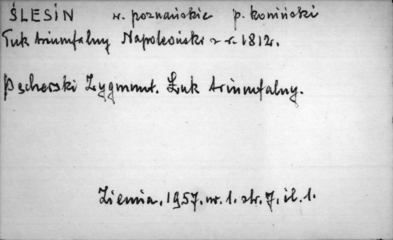 ŚLESIN w. poznańskie p. koniński
Łuk triumfalny Napoleoński z r. 1812.
Pęcherski Zygmunt. Łuk triumfalny.
Ziemia. 1957. nr. 1. str. 7. il. 1.